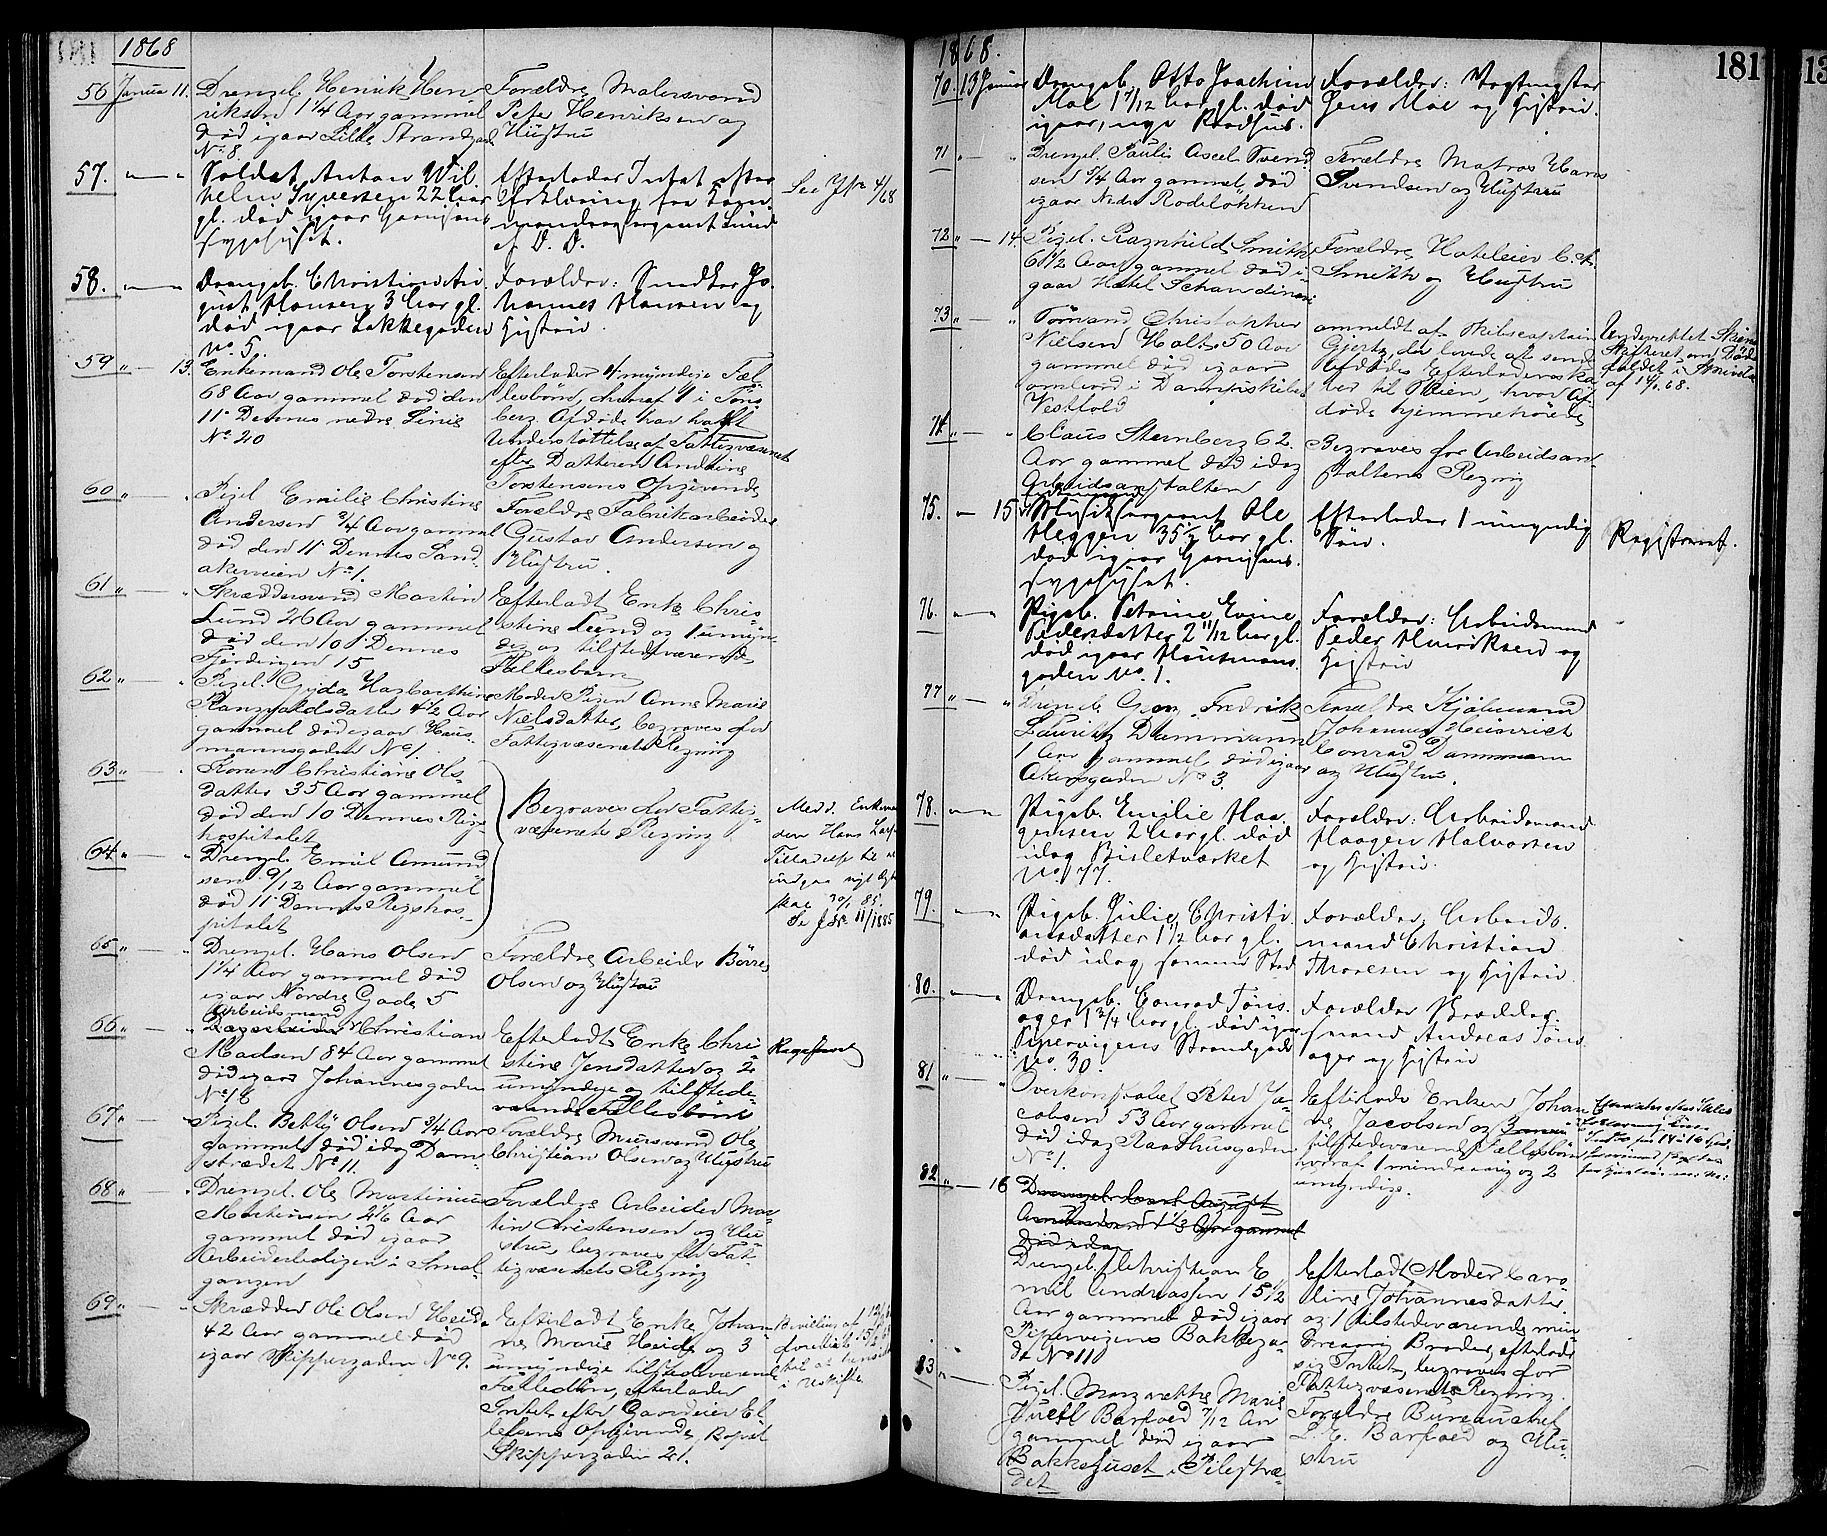 1868
56 Janua 11. Drengeb. Henrik Hen-
riksen 1 1/4 Aar gammel
død igaar Lille Strandgade
No. 8
Forældre Malersvend
Peter Henriksen og
Hustru
57. Soldat Anton Wil-
helm Syversen 22 Aar
gl. død igaar Garnisons
sygehuset.
Efterlader Intet efter
Erklæring fra Kom-
mandersergeant Lund
af D. D.
See Jfr 4/68
58. Drengeb. Christian Au-
gust Hansen 3 Aar gl.
død igaar Løkkegaden
No. 5.
Forældre: Snedker Jo-
hannes Hansen og
Hustru.
59 13. Enkemand Ole Torstensen
68 Aar gammel død den
11' Dennes nedre Linie
No 20
Efterlader 4 myndige Fæl-
lesbörn, hvoraf 1 i Töns-
berg Afdöde har havt
Understöttelse af Fattigvæsenet
efter Datteren Andrine
Torstensens Opgivende
60 Pigeb. Emilie Christine
Andersen 3/4 Aar gammel
død den 11' Dennes Sand-
akerveien No 1.
Forældre Fabrikarbeider
Gustav Andersen og
Hustru.
61 Skræddersvend Martin
Lund 26 Aar gammel
død den 10' Dennes
Fjerdingen 15
Efterladt Enke Chris-
tine Lund og 1 umyn-
dig og tilstedeværende
Fællesbarn
62 Pigeb. Gyda Hagbarthine
Ragnvaldsdatter 4 1/2 Aar
gammel død igaar Haus-
mannsgaden No 1.
Moder Pigen Anne Marie
Nielsdatter, begraves for
Fattigvæsenets Regning
63 Karen Christiane Ols-
datter 35 Aar gammel
død den 10 Dennes Rigs-
hospitalet
64 Drengeb. Emil Amund-
sen 9/12 Aar gammel
død 11' Dennes Rigshos-
pitalet
Begraves for Fattig-
væsenets Regning
Medd. Enkeman-
den Hans
Tilladelse til at
indgaa nyt Ægte-
skab 30/1 85.
Se Jfr 11/1885
65 Drengeb. Hans Olsen
1 1/4 Aar gammel død
igaar Nordre Gade 5
Forældre Arbeider Börre
Olsen og Hustru
66 Arbeidsmand
Christian
Madsen 84 Aar gammel
død igaar Johannesgaden
No 18
Efterladt Enke Chri-
stine Jensdatter og 2
umyndige og tilstede-
værende Fællesbörn
Registreret
67 Pigeb. Betty Olsen 3/4 Aar
gammel død idag Dam-
strædet No 11.
Forældre Mursvend Ole
Christian Olsen og Hustru
68 Drengeb. Ole Martinius
Martinsen 2 1/6 Aar
gammel død igaar
Arbeiderboligen i Smal-
gangen
Forældre Arbeider Mar-
tin Christensen og Hu-
stru, begraves for Fat-
tigvæsenets Regning
69 Skrædder Ole Olsen Heide
42 Aar gammel død
igaar Skippergaden No 9.
Efterladt Enke Johan-
ne Marie Heide og 3
umyndige tilstedeværende
Fællesbörn, efterlader
Intet efter Gaardeier El-
lefsens Opgivende, Röpal
Skippergaden 21.
Bevilling af 12/2
foredrat 15/2
til at hensidde
i uskiftet
1868. 181
70. 13 Januar Drengeb. Otto Joachim
Moe 1 7/12 Aar gl. død
igaar, nye Raadhus.
Forældre: Vagtmester
Jens Moe og Hustru.
71 Drengeb. Paulis Axel Svend-
sen 3/4 Aar gammel, død
igaar Nedre Rodeløkken
Forældre Matros Hans
Svendsen og Hustru
72 14. Pigeb. Ragnhild Smith
6 1/2 Aar gammel død i-
gaar Hotel Scandinavi
Forældre Hoteleier C. A.
Smith og Hustru
73 Sömand Christopher
Nielsen Holt, 50 Aar
gammel død igaar
ombord i Dampskibet
Vestfold
anmeldt af Skibscaptain
Gjertz, der lovede at sende
Afdödes Efterladenska-
ber til Skien, hvor Af-
döde hjemmehörer
Underrettet Skiens
Skifteret om Döds-
faldet i Skrivelse
af 14/1 68.
74 Claus Sternberg 62
Aar gammel død idag
Arbeidsanstalten
Begraves for Arbeidsan-
staltens Regning
75. 15 Musiksergeant Ole
Heggen 35 1/2 Aar gl.
død igaar Garnisons-
sygehuset.
Efterlader 1 umyndig
Sön.
Registreret.
76. Pigeb. Petrine Evine
Pedersdatter 2 11/12 Aar gl.
død igaar Hausmans-
gaden No. 1.
Forældre: Arbeidsmand
Peder Henriksen og
Hustru
77 Drengeb. Georg Fredrik
Lauritz Dammann
1 Aar gammel død igaar
Akersgaden No 3.
Forældre Kjöbmand
Johannes Heinrich
Conrad Dammann
og Hustru.
78. Pigeb. Emilie Haa-
gensen 2 Aar gl. død
idag Bisletværket
No. 77.
Forældre: Arbeidsmand
Haagen Halvorsen
og Hustru.
79. Pigeb. Julie Christi-
ansdatter 1 1/2 Aar gl.
død idag samme Sted
Forældre: Arbeids-
mand Christian
Thoresen og Hustru.
80. Drengeb. Conrad Töns-
ager 1 3/4 Aar gl. død igaar
Pipervigens Strandgade
No. 30.
Forældre Skrædder-
svend Andreas Töns-
ager og Hustru
81 Overkonstabel Peter Ja-
cobsen 53 Aar gammel
død idag Raadhusgaden
No 1.
Efterlader Enken Johan-
ne Jacobsen og 3
tilstedeværende Fællesbörn
hvoraf 1 mindreaarig og 2
umyndige.
82. 16 Drengeb. Carl August
Amundsen 1 1/3 Aar gammel
død idag
Drengeb. Christian E-
mil Andreassen 1 5/12
Aar gammel død igaar
Pipervigens Bakkega-
de No 11
Efterladt Moder Caro-
line Johannesdatter
og 1 tilstedeværende min-
dreaarig Broder, efterlader
sig Intet, begraves for
Fattigvæsenets Regning.
83 Pigeb. Margrethe Marie
Juell Barfoed 7/12 Aar
gammel død igaar
Bakkehuset i Pilestræ-
det
Forældre Bureauchef
L. E. Barfoed og Hu-
stru